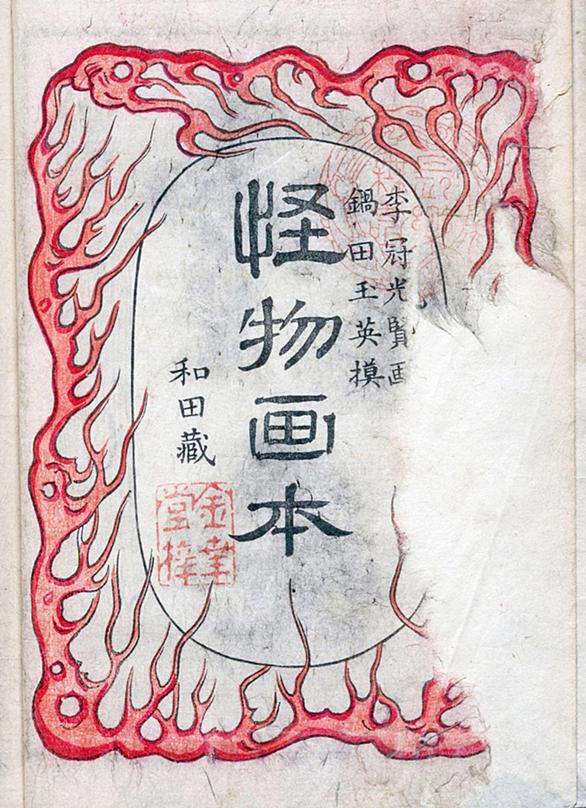 李冠光賢画
鍋田玉英摸
怪物画本
和田藏
金幸
堂梓